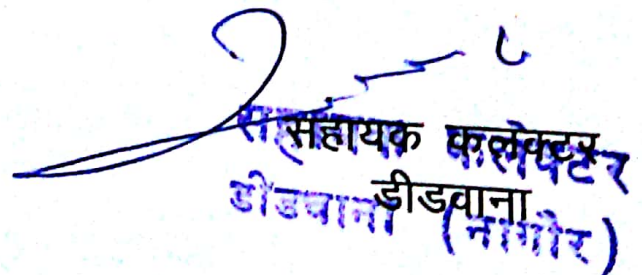 सहायक कलेक्टर
डीडवाना
सहायक कलेक्टर
डीडवाना (नागौर)